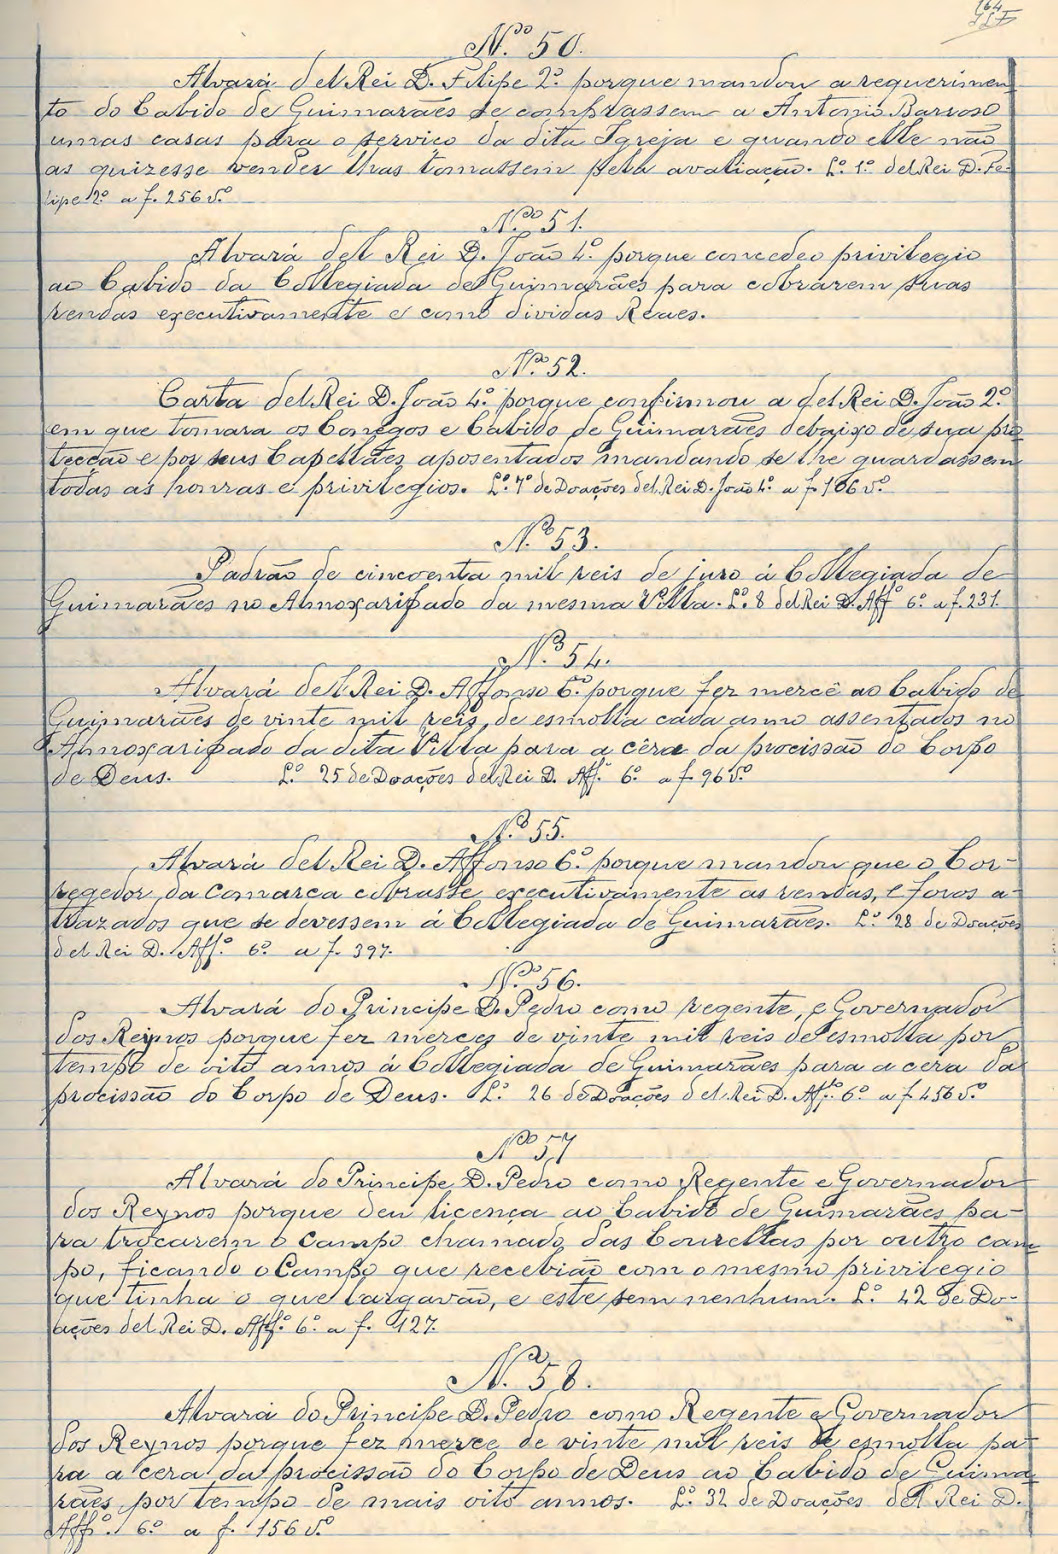 164
N.º 50.
Alvará del Rei D. Filipe 2.º porque mandou a requerimen-
to do Cabido de Guimarães se comprassem a Antonio Barroso
umas casas para o serviço da dita Igreja e quando elle não
as quizesse vender lhas tomassem pela avaliação. L.º 1.º del Rei D. Fe-
lipe 2.º a f. 256 v.º
N.º 51.
Alvará del Rei D. João 4.º porque concedeo privilegio
ao Cabido da Collegiada de Guimarães para cobrarem suas
rendas executivamente e como dividas Reaes.
N.º 52.
Carta del Rei D. João 4.º porque confirmou a del Rei D. João 2.º
em que tomara os Conegos e Cabido de Guimarães debaixo de sua pro-
tecção e por seus Capellães aposentados mandando se lhe guardassem
todas as honras e privilegios. L.º 7.º de Doações del Rei D. João 4.º a f. 106 v.º
N.º 53.
Padrão de cincoenta mil reis de juro á Collegiada de
Guimarães no Almoxarifado da mesma Villa. L.º 8 del Rei D. Aff.º 6.º a f. 231.
N.º 54.
Alvará del Rei D. Affonso 6.º porque fez mercê ao Cabido de
Guimarães de vinte mil reis, de esmolla cada anno assentados no
Almoxarifado da dita Villa para a cêra da procissão do Corpo
de Deus. L.º 25 de Doações del Rei D. Aff.º 6.º a f. 96 v.º
N.º 55.
Alvará del Rei D. Affonso 6.º porque mandou que o Cor-
regedor da Comarca cobrasse executivamente as rendas, e foros a-
trazados que se devessem á Collegiada de Guimarães. L.º 28 de Doações
del Rei D. Aff.º 6.º a f. 397.
N.º 56.
Alvará do Principe D. Pedro como regente, e Governador
dos Reynos porque fez merces de vinte mil reis de esmolla por
tempo de oito annos á Collegiada de Guimarães para a cera da
procissão do Corpo de Deus. L.º 26 de Doações del Rei D. Aff.º 6.º a f. 456 v.º
N.º 57
Alvará do Principe D. Pedro como Regente e Governador
dos Reynos porque deu licença ao Cabido de Guimarães pa-
ra trocarem o Campo chamado das Courellas por outro cam-
po, ficando o Campo que recebião com o mesmo privilegio
que tinha o que largavão, e este sem nenhum. L.º 42 de Do-
ações del Rei D. Aff.º 6.º a f. 127.
N.º 58.
Alvará do Principe D. Pedro como Regente e Governador
dos Reynos porque fez merce de vinte mil reis de esmolla pa-
ra a cera da procissão do Corpo de Deus ao Cabido de Guima-
rães, por tempo de mais oito annos. L.º 32 de Doações del Rei D.
Aff.º 6.º a f. 156 v.º